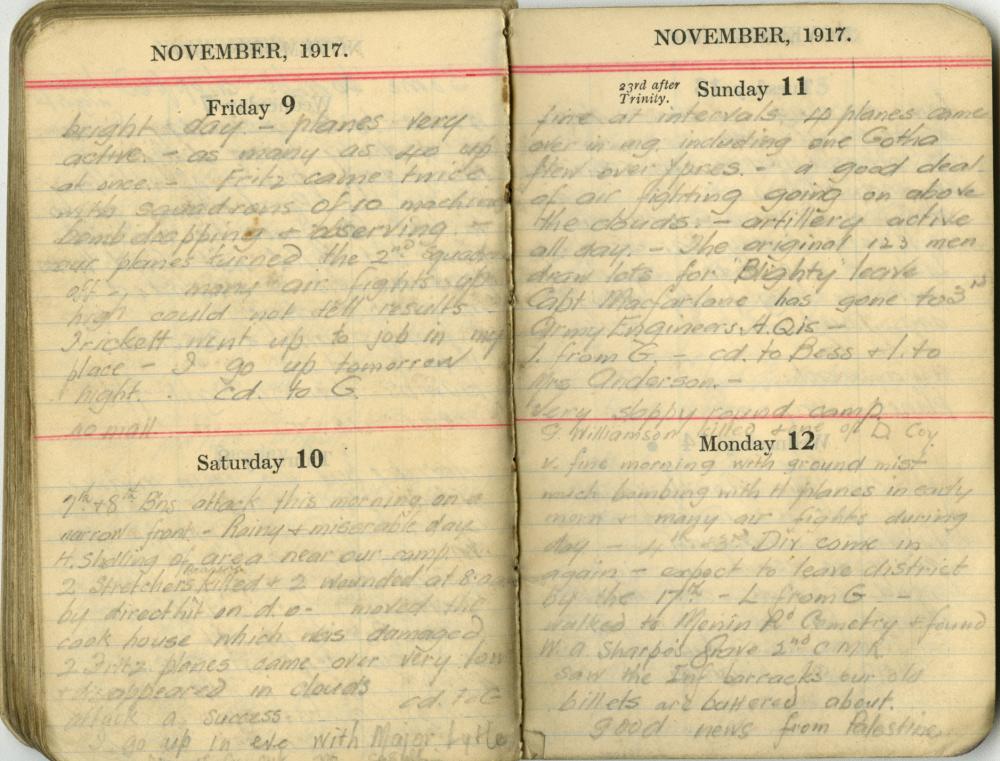 NOVEMBER, 1917.
Friday 9
bright day - planes very
active. - as many as 40 up
at once. - Fritz came twice
with squadrons of 10 machines
bomb dropping + observing -
our planes turned the 2nd squadn
off -, many air fights
high could not tell results -
Trickett went up to job in my
place - I go up tomorrow
night. cd. to G.
no mail
Saturday 10
7th + 8th Bns attack this morning on a
narrow front - Rainy + miserable day
H. Shelling of area near our camp
2 Stretchers killed + 2 wounded at 8.
by direct hit on d.o - moved the
cook house which was damaged
2 Fritz planes came over very low
+ disappeared in clouds
cd. to G
attack a success.
I go up in eve with Major Lytle
NOVEMBER, 1917.
23rd after Trinity.
Sunday 11
fine at intervals. 40 planes came
over in mg. including one Gotha
flew over Ypres. - a good deal
of air fighting going on above
the clouds. - artillery active
all day. - The original 123 men
draw lots for "Blighty" leave
Capt Macfarlane has gone to 3rd
Army Engineers H.Qis -
l. from G. - cd. to Bess + l. to
Mrs Anderson. -
very sloppy round camp
G. Williamson killed + one of D. Coy.
Monday 12
v. fine morning with ground mist
much bombing with H planes in early
morn + many air fights during
day - 4th + 3rd Div come in
again - expect to leave district
by the 17th - L from G -
walked to Menin Rd Cemetry + found
W. A Sharpe's Grave 2nd C.M.R.
saw the Inf barracks our old
billets are battered about.
good news from Palestine.